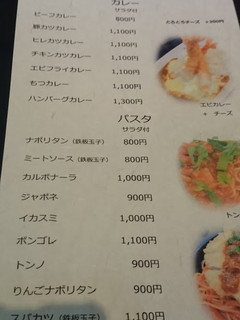 カレー
サラダ付
ビーフカレー 800円
豚カツカレー 1,100円
ヒレカツカレー 1,100円
チキンカツカレー 1,100円
エビフライカレー 1,100円
もつカレー 1,100円
ハンバーグカレー 1,300円
エビカレー
+ チーズ
パスタ
サラダ付
ナポリタン（鉄板玉子） 800円
ミートソース（鉄板玉子） 800円
カルボナーラ 1,000円
ジャポネ 900円
イカスミ 1,000円
ボンゴレ 1,100円
トンノ 900円
りんごナポリタン 900円
スパカツ（鉄板玉子） 1,100円
トン